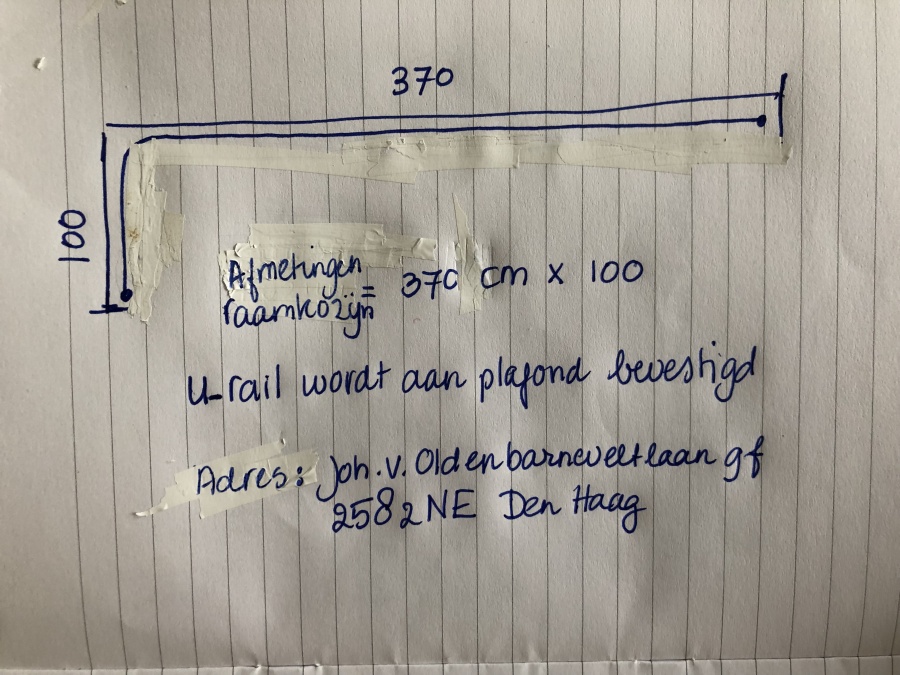 370
100
Afmetingen
raamkozijn = 370 cm x 100
U-rail wordt aan plafond bevestigd
Adres: Joh. v. Oldenbarneveltlaan 9f
2582NE Den Haag